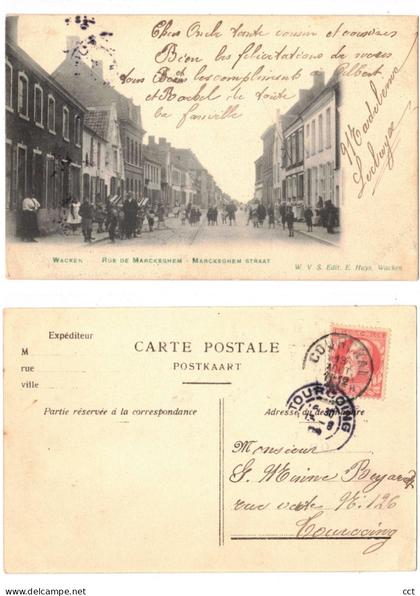 Chers Oncle tante cousin et cousines
Bien les félicitations de nous
tous et les compliments à Gilbert
et Rachel de toute
la famille
Madeleine
WACKEN RUE DE MARCKEGHEM - MARCKEGHEM STRAAT
W. V S. Edit. E. Huys, Wacken
Expéditeur
M
rue
ville
CARTE POSTALE
POSTKAART
Partie réservée à la correspondance
Adresse du destinataire
COURTRAI
TOURCOING
Monsieur
G.
rue verte N: 126
Tourcoing
cct